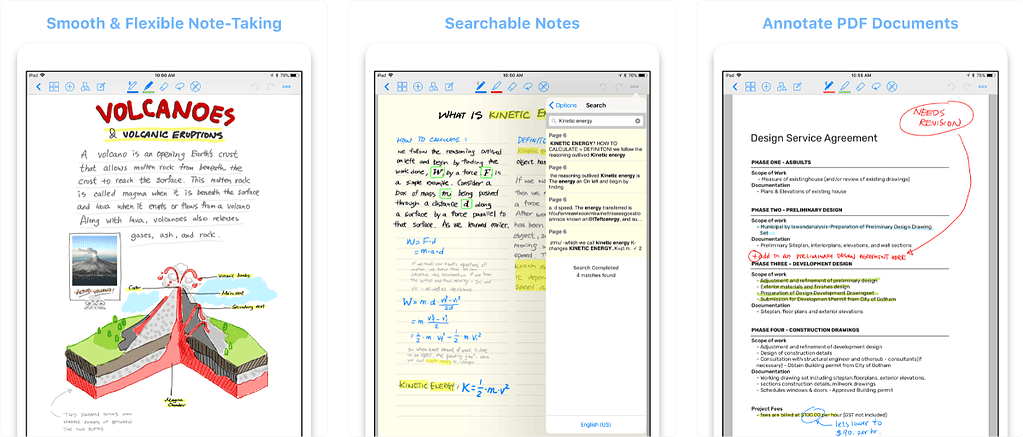 Smooth & Flexible Note-Taking
iPad
10:50 AM
79%
VOLCANOES
& VOLCANIC ERUPTIONS
A volcano is an opening Earth's crust
that allows molten rock from beneath the
crust to reach the surface. This molten rock
is called magma when it is beneath the surface
and lava when it erupts or flows from a volcano
Along with lava, volcanoes also releases
gases, ash, and rock.
Volcanic bombs
Crater
Main vent
Secondary vent
Magma
Chamber
Searchable Notes
iPad
10:50 AM
76%
WHAT IS KINETIC E
HOW TO CALCULATE:
we follow the reasoning outlined
on left and begin by finding the
work done, W, by a force F in
a simple example. Consider a
box of mass m being pushed
through a distance d along
a surface by a force parallel to
That surface. As we learned earlier.
W = F·d
= m·a·d
KINETIC ENERGY: K = 1/2·m·v²
DEFINITI
Kinetic en
object has
Options
Search
Kinetic energy
Page 6
KINETIC ENERGY? HOW TO
CALCULATE = DEFINITONI we follow the
reasoning outlined Kinetic energy
Page 6
the reasoning outlined Kinetic energy is
The energy an On left and begin by
finding
Page 6
Page 6
changes KINETIC ENERGY
Search Completed
4 matches found
English (US)
Annotate PDF Documents
iPad
10:55 AM
75%
NEEDS
REVISION
Design Service Agreement
PHASE ONE - ASBUILTS
Scope of Work
- Measure of existinghouse (and/or review of existing drawings)
Documentation
- Plans & Elevations of existing house
PHASE TWO - PRELIMINARY DESIGN
Scope of work
- Municipal by lawandanalysis-Preparation of Prelimnary Design Drawing
Set
Documentation
- Preliminary Siteplan, interiorplans, elevations, and wall sections
add in an PRELIMINARY DESIGN AGREEMENT HERE
PHASE THREE - DEVELOPMENT DESIGN
Scope of work
- Adjustment and refinement of preliminary design
- Exterior materials and finishes design
- Preparation of Design Development Drawingset
- Submission for DevelopmentPermit from City of Gotham
Documentation
- Siteplan, floor plans and exterior elevations
PHASE FOUR - CONSTRUCTION DRAWINGS
Scope of work
- Adjustment and refinement of development design
- Design of construction details
- Consultation with structural engineer and othersub - consultants(if
necessary) - Obtain Building permit from City of Gotham
Documentation
- Working drawing set including siteplan,floorplans, exterior elevations,
sections construction details, millwork drawings
- Schedules windows & doors - Approved Building Permit
Project Fees
- fees are billed at $100.00 per hour (GST not included)
lets lower to
$90. per hr.